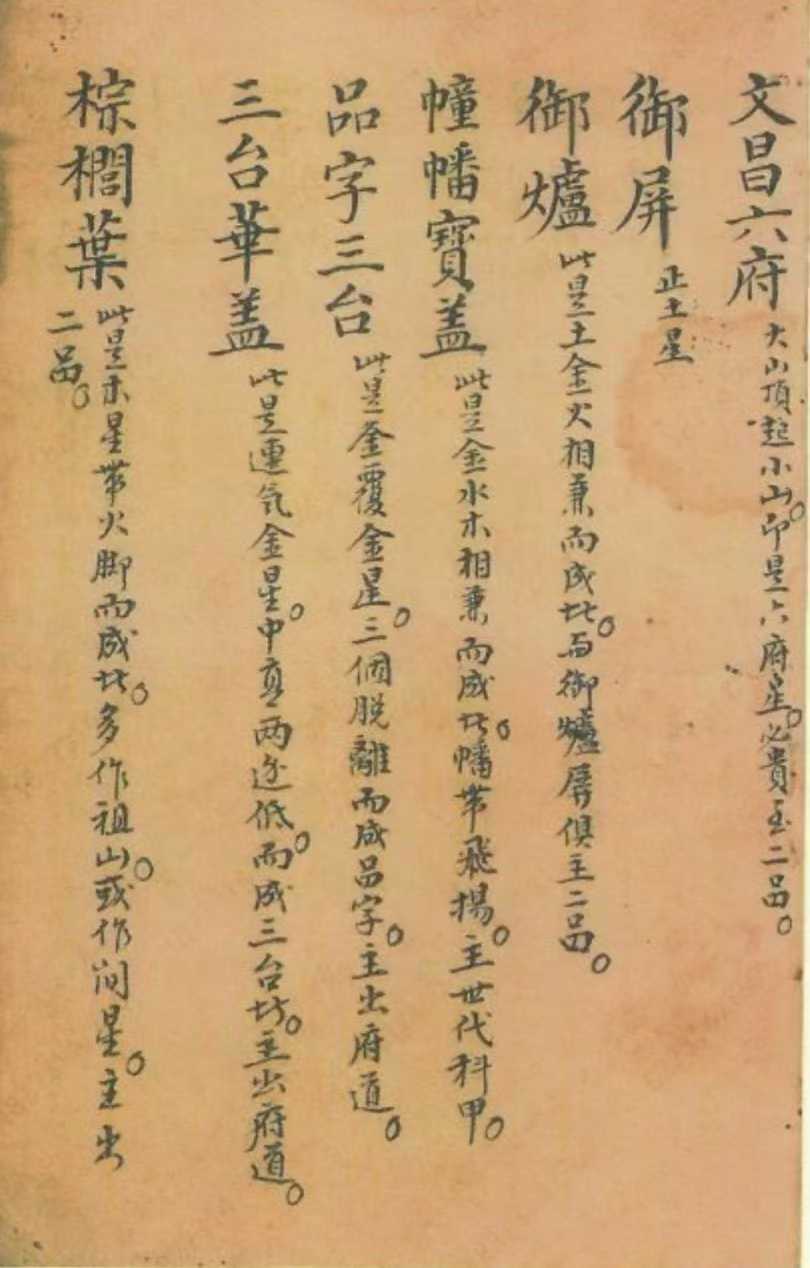 文昌六府 大山頂起小山。即是六府星。必貴至二品。
御屏 正土星
御爐 此是土金火相兼而成此。而御爐屏俱主二品。
幢幡寶盖 此是金水木相兼而成此。幡帶飛揚。主世代科甲。
品字三台 此是釜覆金星。三個脱離而成品字。主出府道。
三台華盖 此是連気金星。中高两边低。而成三台。主出府道。
棕櫚葉 此是木星帶火脚而成此。多作祖山。或作间星。主出
二品。